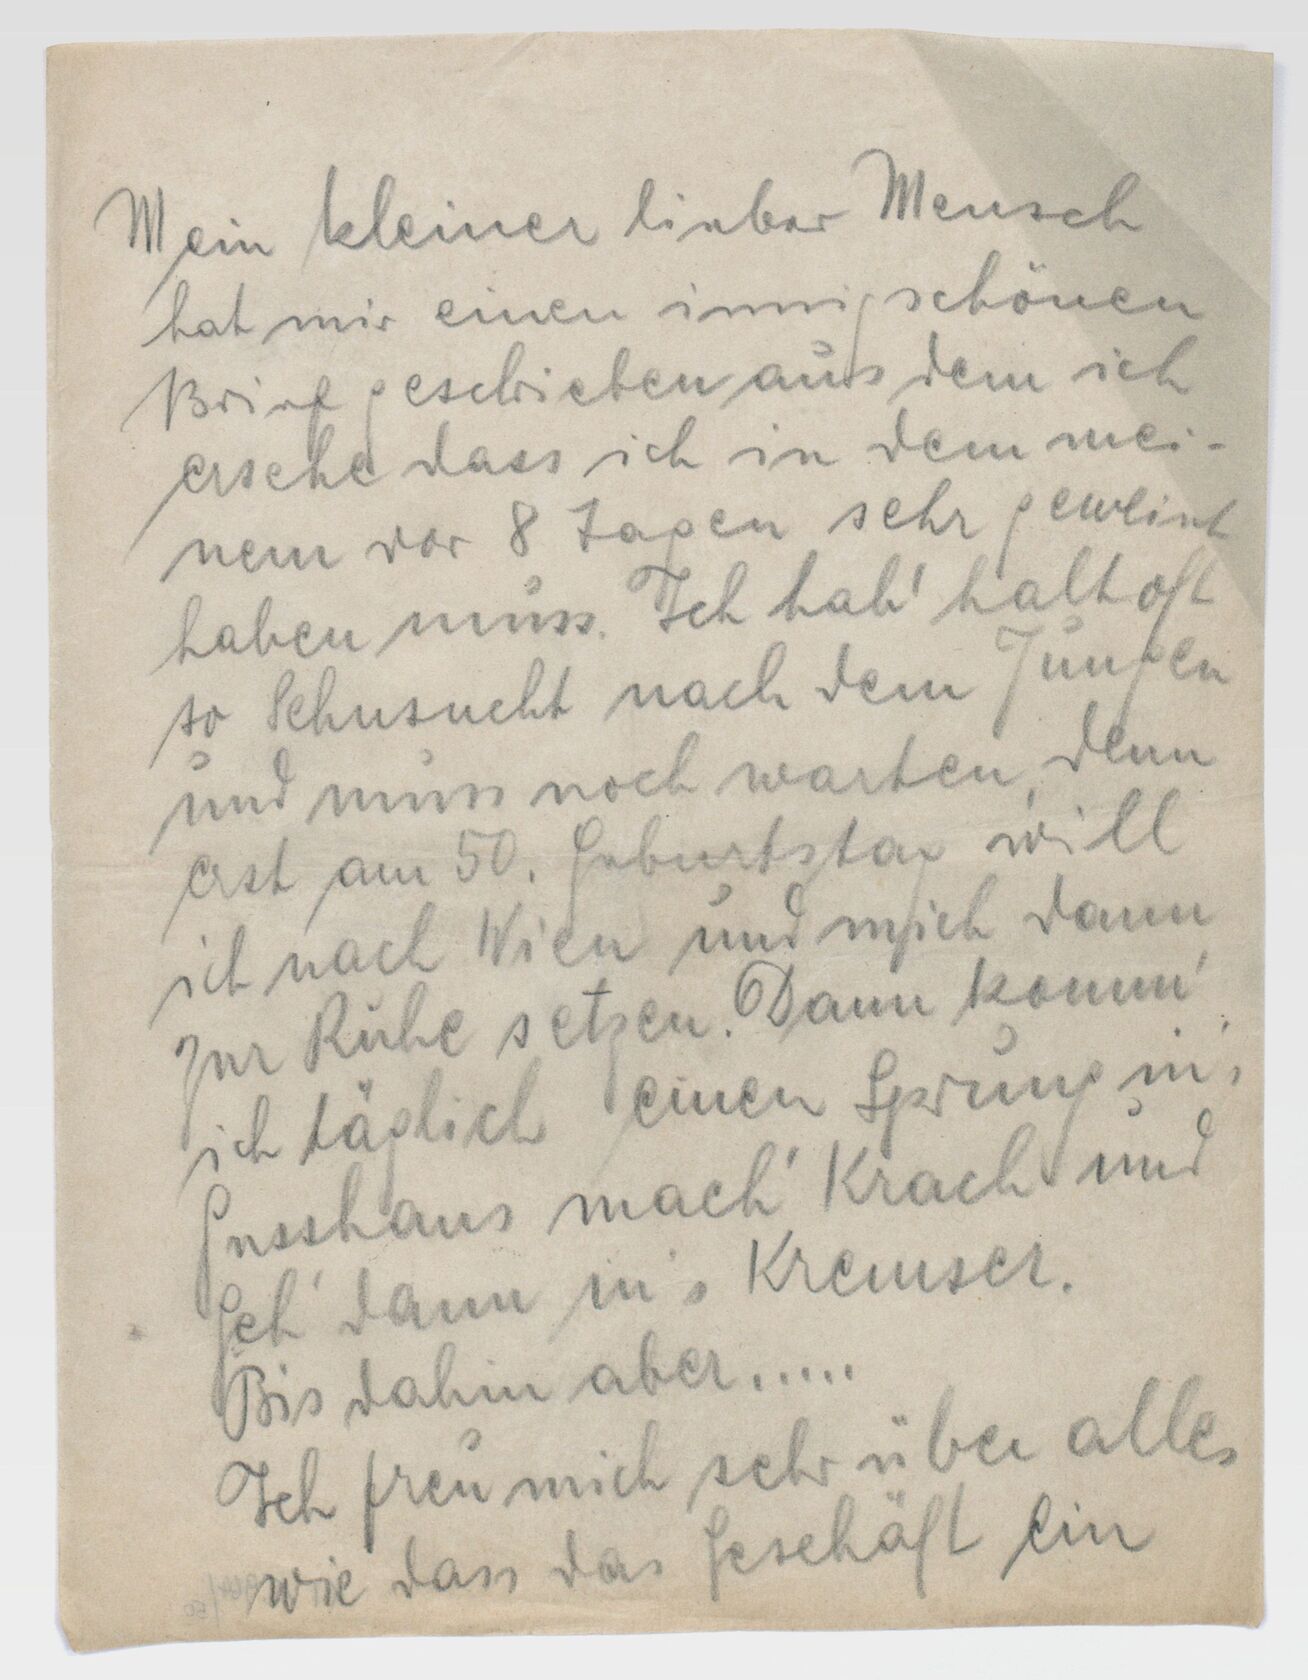 Mein kleiner lieber Mensch
hat mir einen innigschönen
Brief geschrieben aus dem ich
ersehe dass ich in dem mei-
nem vor 8 Tagen sehr geweint
haben muss. Ich hab' halt oft
so Sehnsucht nach dem Jungen
und muss noch warten, denn
erst am 50. Geburtstag will
ich nach Wien und mich dann
zur Ruhe setzen. Dann komm'
ich täglich einen Sprung in's
Gusshaus mach' Krach und
Geh' dann in's Kremser.
Bis dahin aber.....
Ich freu mich sehr über alles
wie dass das Geschäft ein